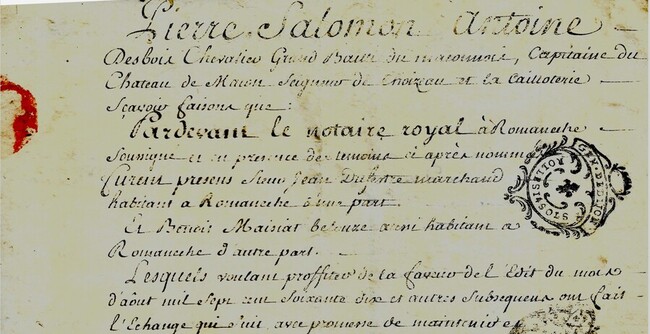 Pierre Salomon Antoine
Desbois Chevalier Grand Bailli du maconnois, Capitaine du
Chateau de Macon Seigneur de Choizeau et la Cailloterie
Sçavoir faisons que:
Pardevant le notaire royal à Romaneche
Soussigné et en presence de temoins ci après nommé
furent presens Sieur Jean marchand
habitant a Romaneche d'une part.
Et Benoit Maisiat aussi habitant a
Romaneche d'autre part.
Lesquels voulant proffiter de la faveur de l'Edit du mois
d'aout mil sept cent soixante dix et autres subsequens ont fait
l'Echange qui suit, avec promesse de maintenir